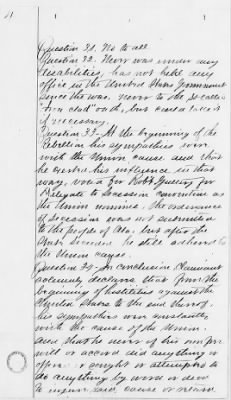 Question 31. No to all.
Question 32. Never was under any
disabilities, has not held any
office in the United States Government
since the war, never took the so called
"Iron clad" oath, but could take it
if necessary.
Question 33. At the beginning of the
Rebellion his sympathies were
with the Union cause and that
he exerted his influence in that
way, voted for Robt
Delegate to secession convention as
the Union nominee. the ordinance
of secession was not submitted
to the people of Ala. but after the
State seceded he still adhered to
the Union cause.
Question 34. In conclusion Claimant
solemnly declares that from the
beginning of hostilities against the
United States to the end thereof
his sympathies were constantly
with the cause of the Union.
and that he never of his own free
will or accord did anything or
offer or sought or attempted to
do anything by word or deed
to injure said cause or retard